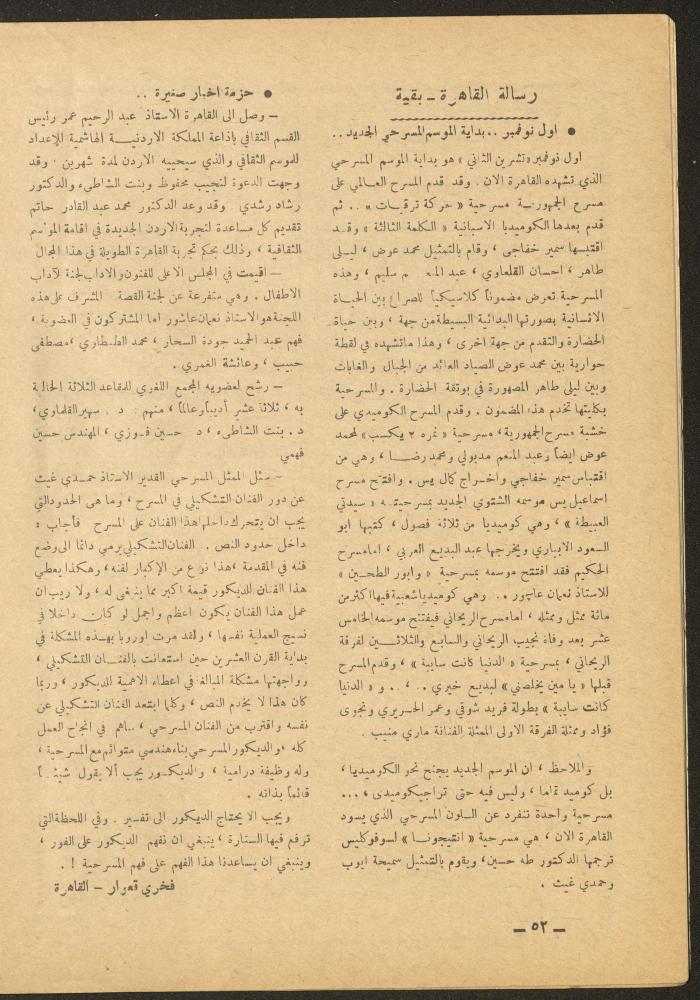 رسالة القاهرة ــ بقية
● اول نوفمبر .. بداية الموسم المسرحي الجديد ..
اول نوفمبر «تشرين الثاني» هو بداية الموسم المسرحي
الذي تشهده القاهرة الان . وقد قدم المسرح العــالمي على
مسرح الجمهوريــة مسرحية « حركة ترقيــات » .. ثم
قدم بعدها الكوميديا الاسبانية « الكلمة الثالثة » وقــد
اقتبسها سمير خفاجي ، وقام بالتمثيل محمد عوض ، ليــلى
طاهر ، احسان القلعاوي ، عبد المنعم سليم ، وهذه
المسرحية تعرض مضموناً كلاسيكياً للصراع بين الحيــاة
الانسانية بصورتها البدائية البسيطة من جهة ، وبين حياة
الحضارة والتقدم من جهة اخرى ، وهذا ماتشهده في لقطة
حوارية بين محمد عوض الصياد العائد من الجبال والغابات
وبين ليلى طاهر المصهورة في بوتقة الحضارة . والمسرحية
بكليتها تخدم هذا المضمون . وقدم المسرح الكوميدي على
خشبة مسرح الجمهورية ، مسرحية « نمره ٢ يكسب » لمحمد
عوض ايضاً وعبد المنعم مدبولي ومحمد رضــا ، وهي من
اقتباس سمير خفاجي واخــراج كمال يس . وافتتح مسرح
اسماعيل يس موسمه الشتوي الجديد بمسرحيتــه « سيدتي
العبيطة » ، وهي كوميديا من ثلاثة فصول ، كتبها ابو
السعود الابياري ويخرجها عبد البديع العربي ، امامسرح
الحكيم فقد افتتح موسمه بمسرحية « وابور الطحــين »
للاستاذ نعمان عاشور .. وهي كوميديا شعبية فيها اكثر من
مائة ممثل وممثله ، امامسرح الريحاني فيفتتح موسمه الخامس
عشر بعد وفاة نجيب الريحاني والسابع والثلاثــين لفرقة
الريحاني ، بمسرحية « الدنيا كانت سايبة » ، وقدم المسرح
قبلها « يا مين يخلصني » لبديع خيري .. ، .. و « الدنيا
كانت سايبة » بطولة فريد شوقي وعمر الحــريري ونجوى
فؤاد وممثلة الفرقة الاولى الممثلة الفنانة ماري منيب .
والملاحظ ، ان الموسم الجديد يجنح نحو الكوميديا ،
بل كوميد تماما ، وليس فيه حتى تراجيكوميدى ، ...
مسرحية واحدة تنفرد عن الــلون المسرحي الذي يسود
القاهرة الان ، هي مسرحية « انتيجونــا » لسوفوكليس
ترجمها الدكتور طه حسين ، ويقوم بالتمثيل سميحة ايوب
وحمدي غيث .
● حزمة اخبار صغيرة ..
ــ وصل الى القاهرة الاستاذ عبد الرحيم عمر رئيس
القسم الثقافي باذاعة المملكة الاردنيــة الهاشمية للإعداد
للموسم الثقافي والذي سيحييه الاردن لمدة شهرين . وقد
وجهت الدعوة لنجيب محفوظ وبنت الشاطىء والدكتور
رشاد رشدي . وقد وعد الدكتور محمد عبد القادر حاتم
تقديم كل مساعدة لتجربة الاردن الجديدة في اقامة المواسم
الثقافية ، وذلك بحكم تجربة القاهرة الطويلة في هذا المجال
ــ اقيمت في المجلس الاعلى للفنون والاداب لجنة لآداب
الاطفال . وهي متفرعة عن لجنة القصة . المشرف على هذه
اللجنة هو الاستاذ نعمان عاشور اما المشتركون في العضوية ،
فهم عبد الحميد جودة السحار ، محمد الطنطاوي ، مصطفى
حبيب ، وعائشة الغمري .
ــ رشح لعضويه المجمع اللغوي للمقاعد الثلاثة الخالية
به ، ثلاثة عشر أديباً وعالماً ، منهم : د . سهير القلماوي ،
د . بنت الشاطىء ، د . حسين فــوزي ، المهندس حسين
فهمي
ــ سئل الممثل المسرحي القدير الاستاذ حمــدي غيث
عن دور الفنان التشكيلي في المسرح ، وما هي الحدود التي
يجب ان يتحرك داخلها هذا الفنان على المسرح فأجاب :
داخل حدود النص . الفنان التشكيلي يرمي دائما الى وضع
فنه في المقدمة ، هذا نوع من الإكبار لفنه ، وهكذا يعطي
هذا الفنان للديكور قيمة اكبر مما ينبغي له ، ولا ريب ان
عمل هذا الفنان يكون اعظم واجمل لو كــان داخلا في
نسيج العملية نفسها ، ولقد مرت اوروبا بهــذه المشكلة في
بداية القرن العشرين حين استعانت بالفنــان التشكيلي ،
وواجهتها مشكلة المبالغة في اعطاء الاهمية للديكور ، وربما
كان هذا لا يخدم النص ، وكلما ابتعد الفنان التشكيلي عن
نفسه واقترب من الفنان المسرحي ، ساهم في انجاح العمل
كله . والديكور المسرحي بناء هندسي متوائم مع المسرحية ،
وله وظيفة درامية ، والديكــور يجب ألا يقول شيئــاً
قائماً بذاته .
ويجب الا يحتاج الديكور الى تفسير . وفي اللحظة التي
ترفع فيها الستارة ، ينبغي ان نفهم الديكور على الفور ،
وينبغي ان يساعدنا هذا الفهم على فهم المسرحية ! .
فخري قعوار ــ القاهرة
ــ ٥٢ ــ